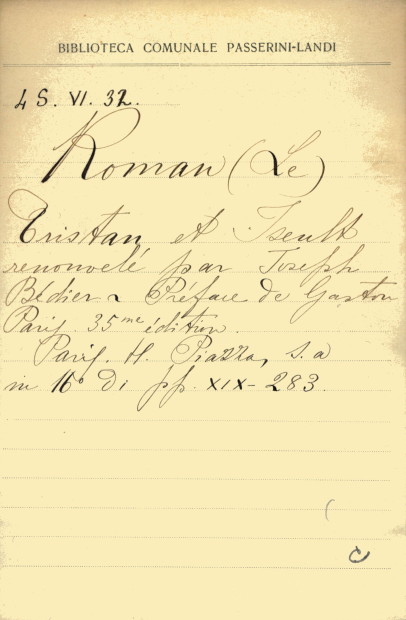 BIBLIOTECA COMUNALE PASSERINI-LANDI
4 S. VI. 32.
Roman (Le)
Tristan et Iseult
renouvelé par Joseph
Bédier ~ Préface de Gaston
Paris. 35me édition.
Paris. H. Piazza, s. a
in 16° di pp. XIX-283.